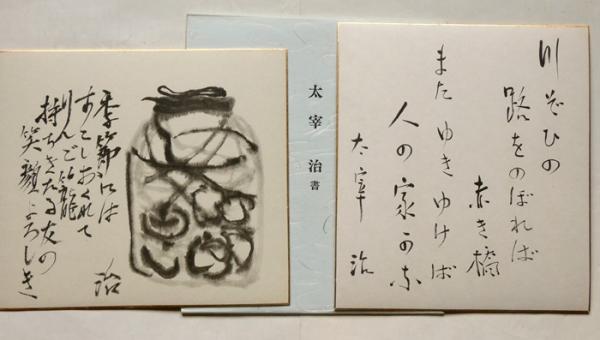 川ぞひの
路をのぼれば
赤き橋
またゆきゆけば
人の家かな
太宰治
太宰治書
季節には
すこしおくれて
りんご籠
持ちきたる友の
笑顔よろしき
治